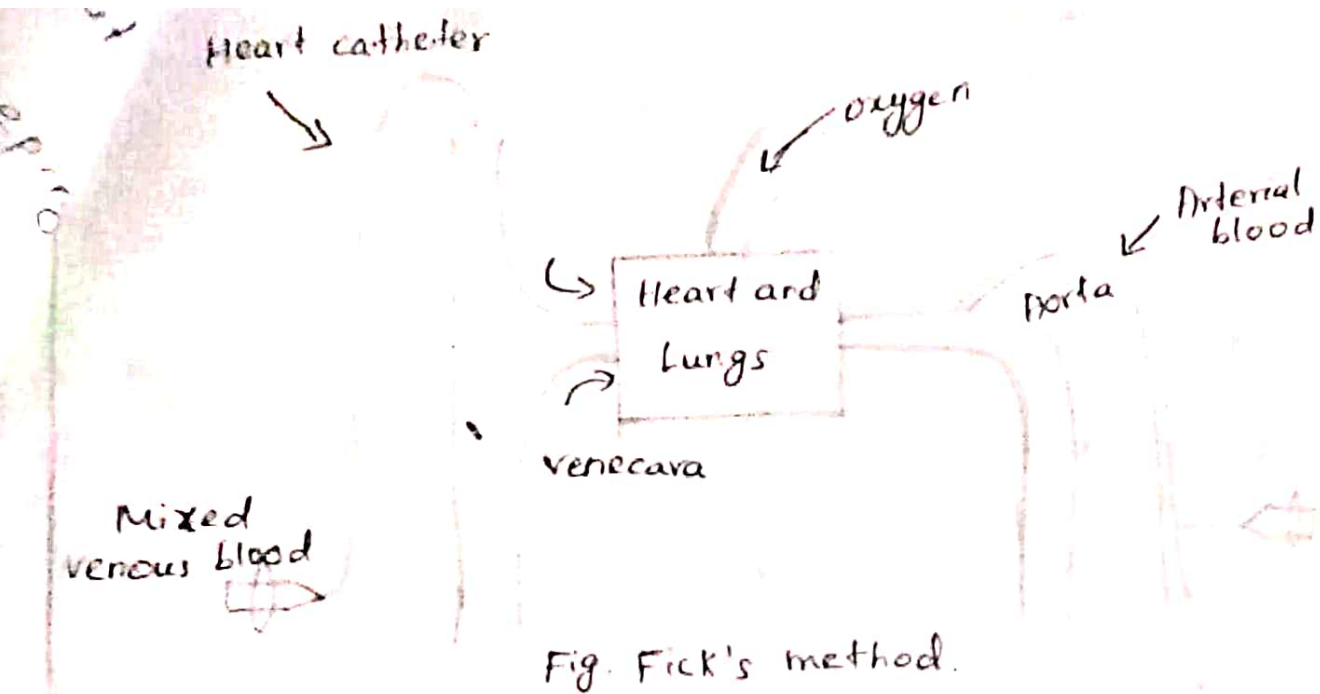 Heart catheter
oxygen
Arterial
blood
Aorta
Heart and
Lungs
venecava
Mixed
venous blood
Fig. Fick's method.